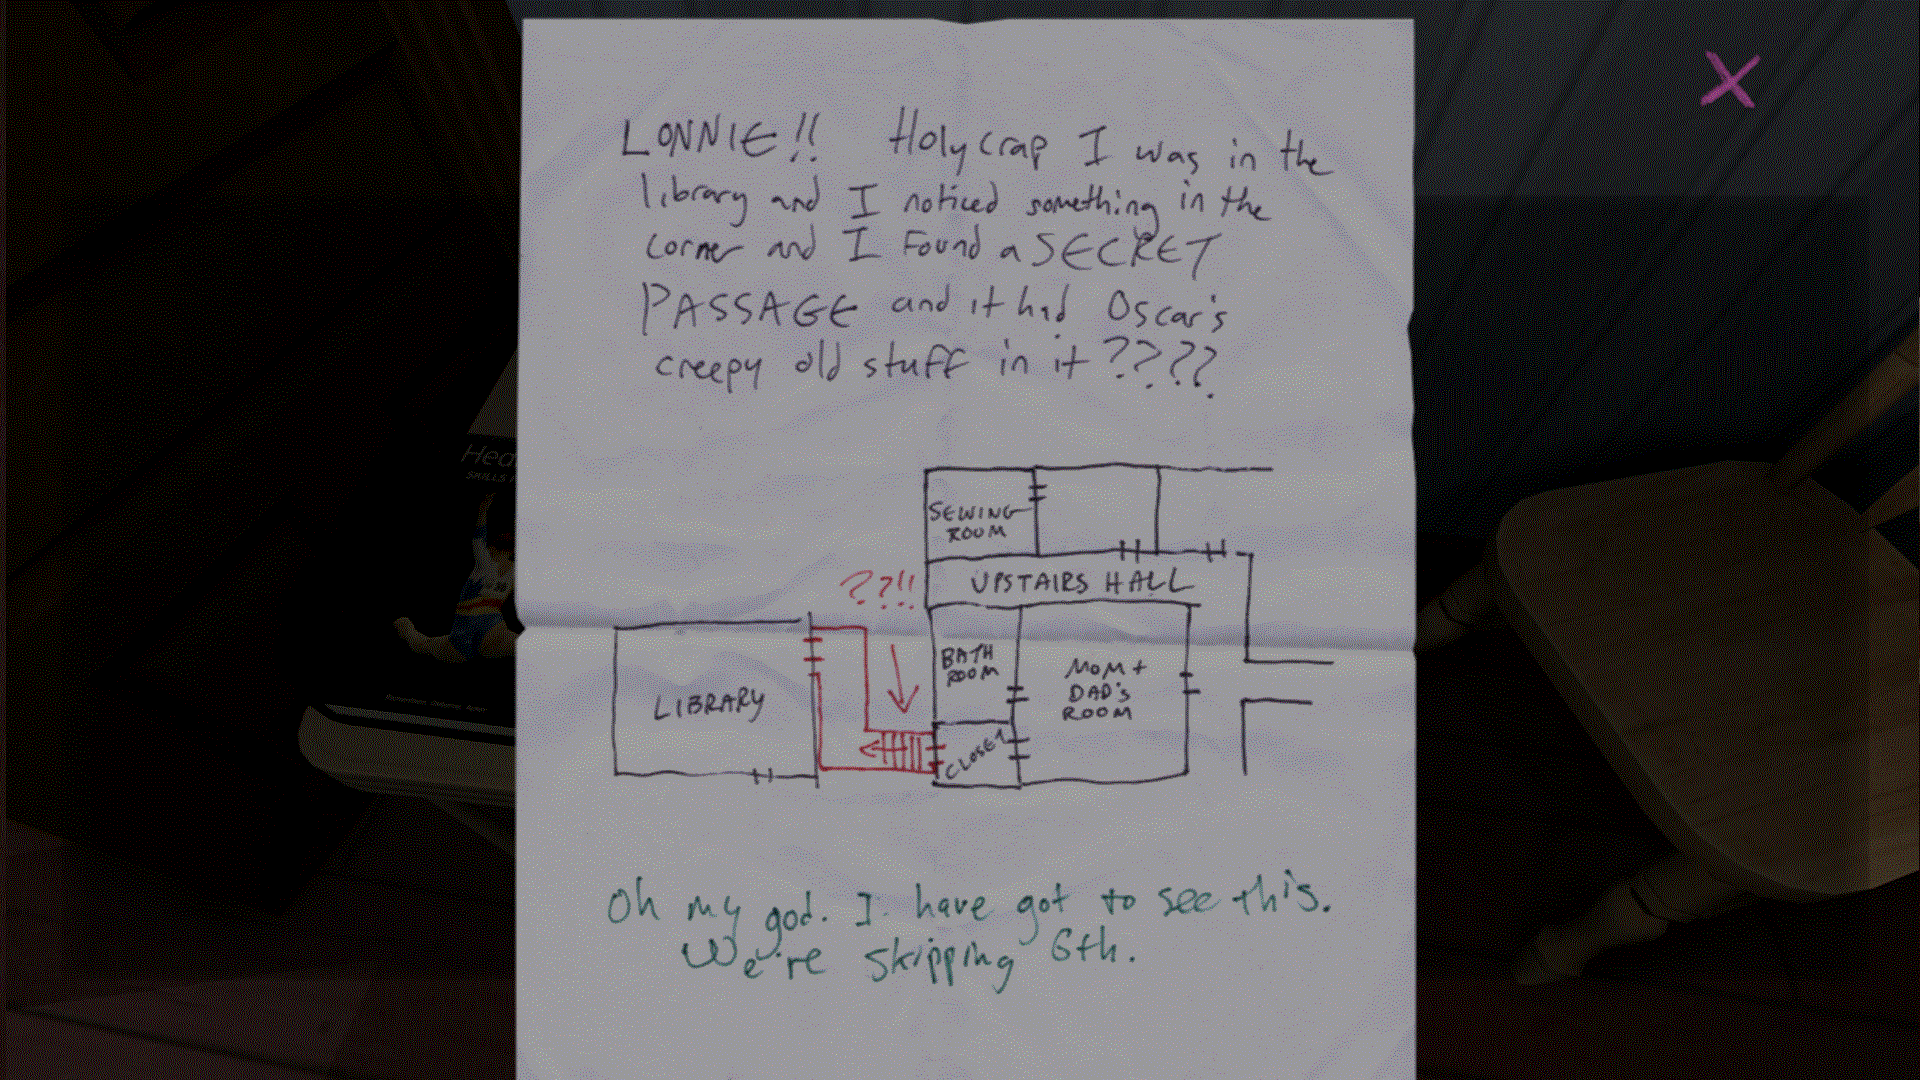 LONNIE!! Holy crap I was in the
library and I noticed something in the
corner and I Found a SECRET
PASSAGE and it had Oscar's
creepy old stuff in it ????
SEWING
ROOM
UPSTAIRS HALL
??!!
BATH
ROOM
MOM +
DAD's
ROOM
LIBRARY
CLOSET
Oh my god. I have got to see this.
We're skipping 6th.